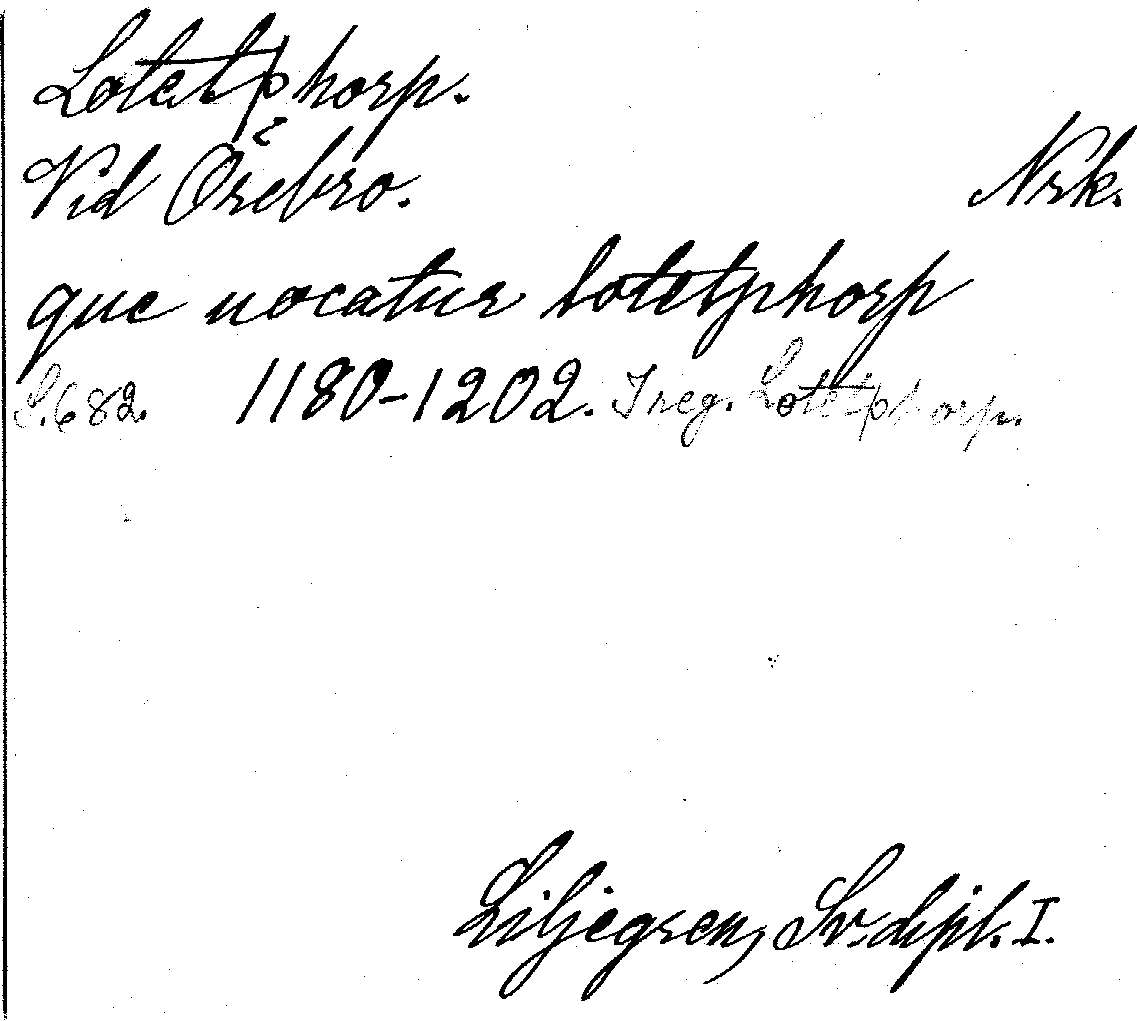 Lotetþhorp.
Vid Örebro. Nrk.
que uocatur lotetphorp
S. 682. 1180-1202. I reg. Lotetþhorp.
Liljegren, Sv. dipl. I.